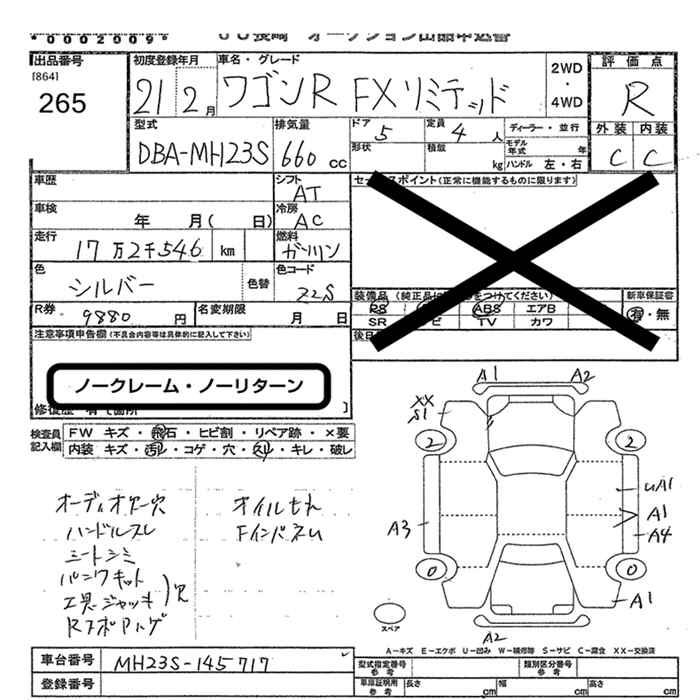 *0002009*
JU長崎 オークション出品申込書
出品番号
[864]
265
初度登録年月
21 2月
車名・グレード
ワゴンR FXリミテッド
2WD
・
4WD
評価点
R
外装 内装
C C
型式
DBA-MH23S
排気量
660 cc
ドア
5
定員
4人
ディーラー・並行
形状
積載
kg
モデル年式 年
ハンドル 左・右
車歴
シフト
AT
車検
年 月( 日)
冷房
AC
走行
17万2千546 km
燃料
ガソリン
色
シルバー
色替
色コード
Z2S
R券
9880円
名変期限
月 日
セールスポイント(正常に機能するものに限ります)
装備品 をつけてください)
PS ABS エアB
SR TV カワ
新車保証書
有・無
注意事項申告欄(不具合内容等は具体的に記入して下さい)
ノークレーム・ノーリターン
検査員記入欄
FW キズ・飛石・ヒビ割・リペア跡・×要
内装 キズ・汚レ・コゲ・穴・スレ・キレ・破レ
オーディオヤー穴
ハンドルスレ
シートシミ
パンクキット
工具ジャッキ
欠
オイルもれ
A1 A2
XX
S1
2 2
UA1
A1
A3 A4
0 0
A1
スペア
A2
A-キズ E-エクボ U-凹み W-補修跡 S-サビ C-腐食 XX-交換済
車台番号
MH23S-145717
登録番号
型式指定番号
参考
類別区分番号
参考
車庫証明用
参考
長さ cm
幅 cm
高さ cm